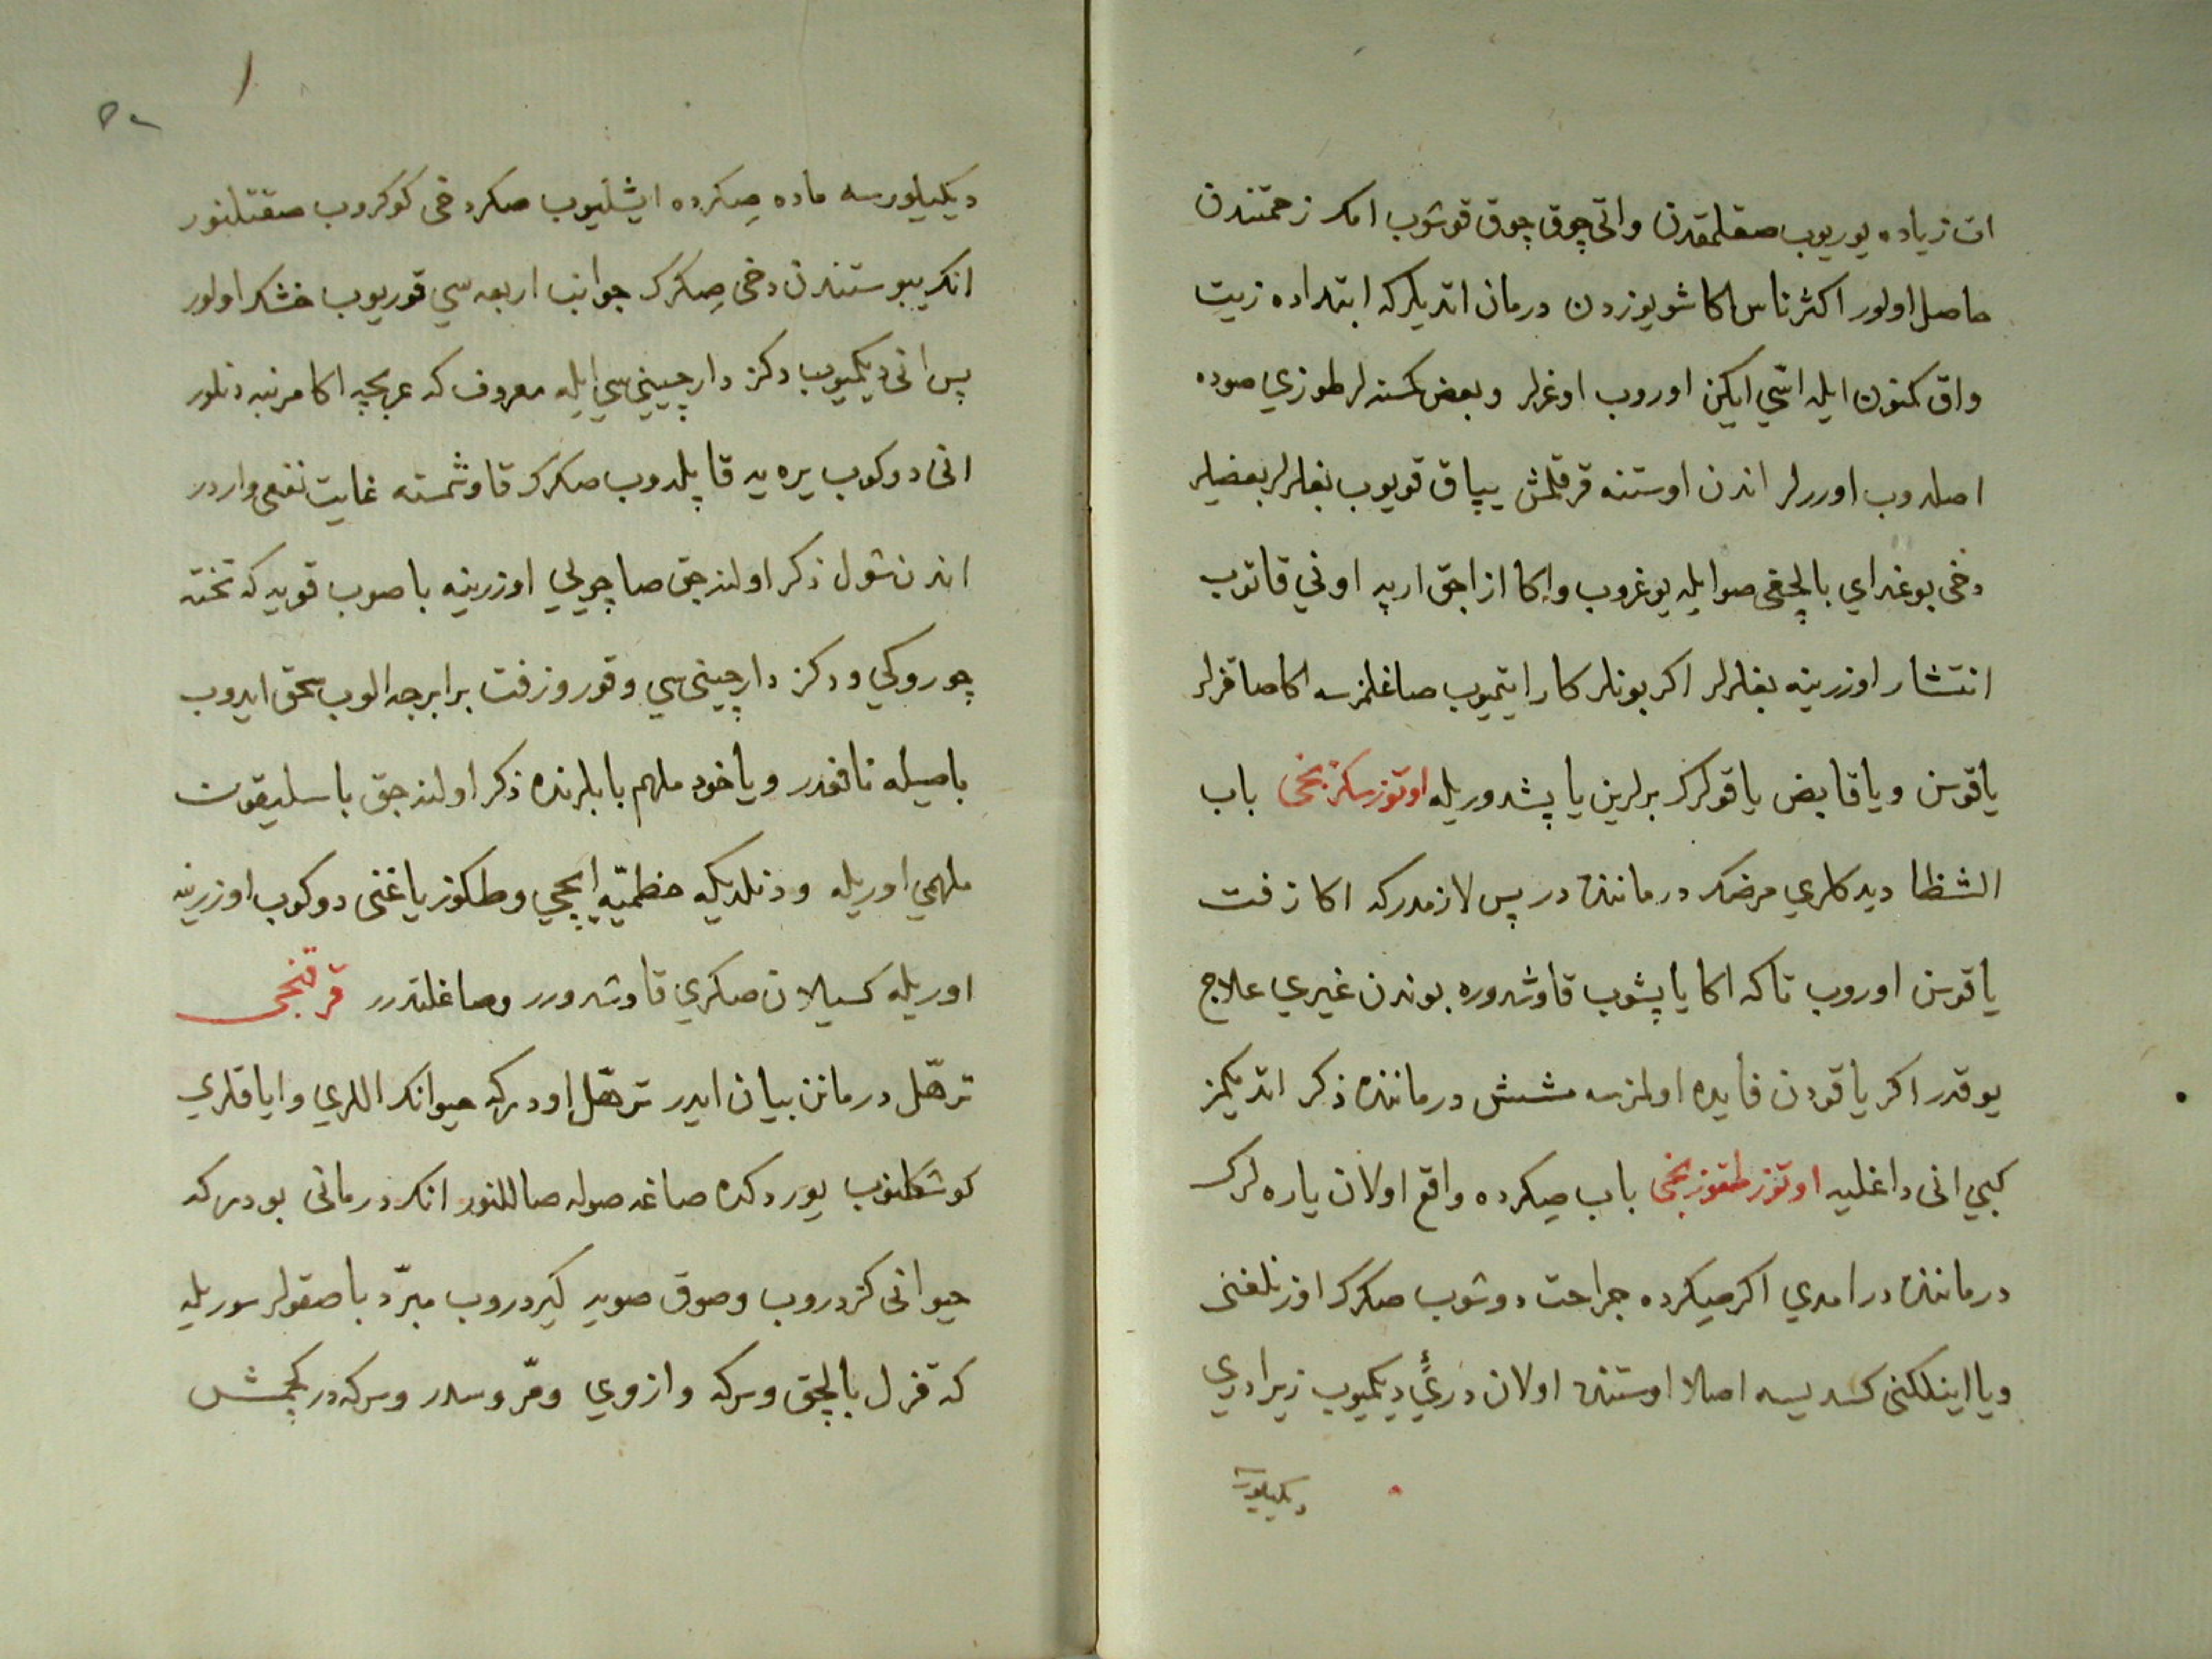 ات زياده يوريوب صقلمقدن واتی چوق چوق قوشوب امك زحمتندن
حاصل اولور اكثر ناس اكا شو يوزدن درمان اتديلركه ابتداده زيت
واق كمنون ايله اسّي ايكن اوروب اوغرلر وبعض كمسنه لر طوزي صوده
اصلدوب اوررلر اندن اوستنه قرقلمش يپاق قويوب بغلرلر بعضيلر
دخی بوغداي بالچغی صو ايله يوغروب واكا ازاجق ارپه اونی قاتوب
انتشار اوزرينه بغلرلر اكر بونلر كار ايتميوب صاغلمزسه اكا صاقزلر
ياقوسن ويا قابض ياقولرك برلرين ياپشدوريله اوتوز سكزنجی باب
الشظا ديدكلري مرضك درماننده در پس لازمدركه اكا زفت
ياقوسن اوروب تاكه اكا ياپشوب قاوشدوره بوندن غيري علاج
يوقدر اكر ياقودن فايده اولمزسه مشش درماننده ذكر اتديكمز
كبي انی داغليه اوتوز طقوزنجی باب صكرده واقع اولان ياره لرك
درماننده در امدي اكر صكرده جراحت دوشوب صكرك اوزنلغنی
ويا اينلكنی كسديسه اصلا اوستنده اولان دري ديكميوب زيرا دري
ديكيلورسه
ديكيلورسه ماده صكرده ايشليوب صكر دخی كوكروب صقتلنور
انك يبوستندن دخی صكرك جوانب اربعه سي قوريوب خشك اولور
پس انی ديكميوب دكز دارچيني سي ايله معروف كه عربجه اكا مرنبه دنلور
انی دوكوب يره يه قاپلدوب صكرك قاوشمسنه غايت نفعی واردر
اندن شول ذكر اولنه جق صاچويلي اوزرينه باصوب قويه كه تخته
چوروكي ودكز دارچيني سي وقورو زفت برابرجه الوب سحق ايدوب
باصيله نافعدر ويا خود ملهم بابلرنده ذكر اولنه جق باسليقون
ملهمي اوريله ودنلديكه خطميّه ايچي وطكوز ياغنی دوكوب اوزرينه
اوريله كسيلان صكري قاوشدورر وصاغلتدرر قرقنجی
ترهّل درمانن بيان ايدر ترهّل اودركه حيوانك اللري واياقلري
كوشكلنوب يوردكده صاغه صوله صاللنور انك درمانی بودركه
حيوانی كزدروب وصوق صويه كيردروب مبرّد باصقولر سوريله
كه قزل بالچق وسركه وازوي ومرّ وسدر وسركه در كچمش